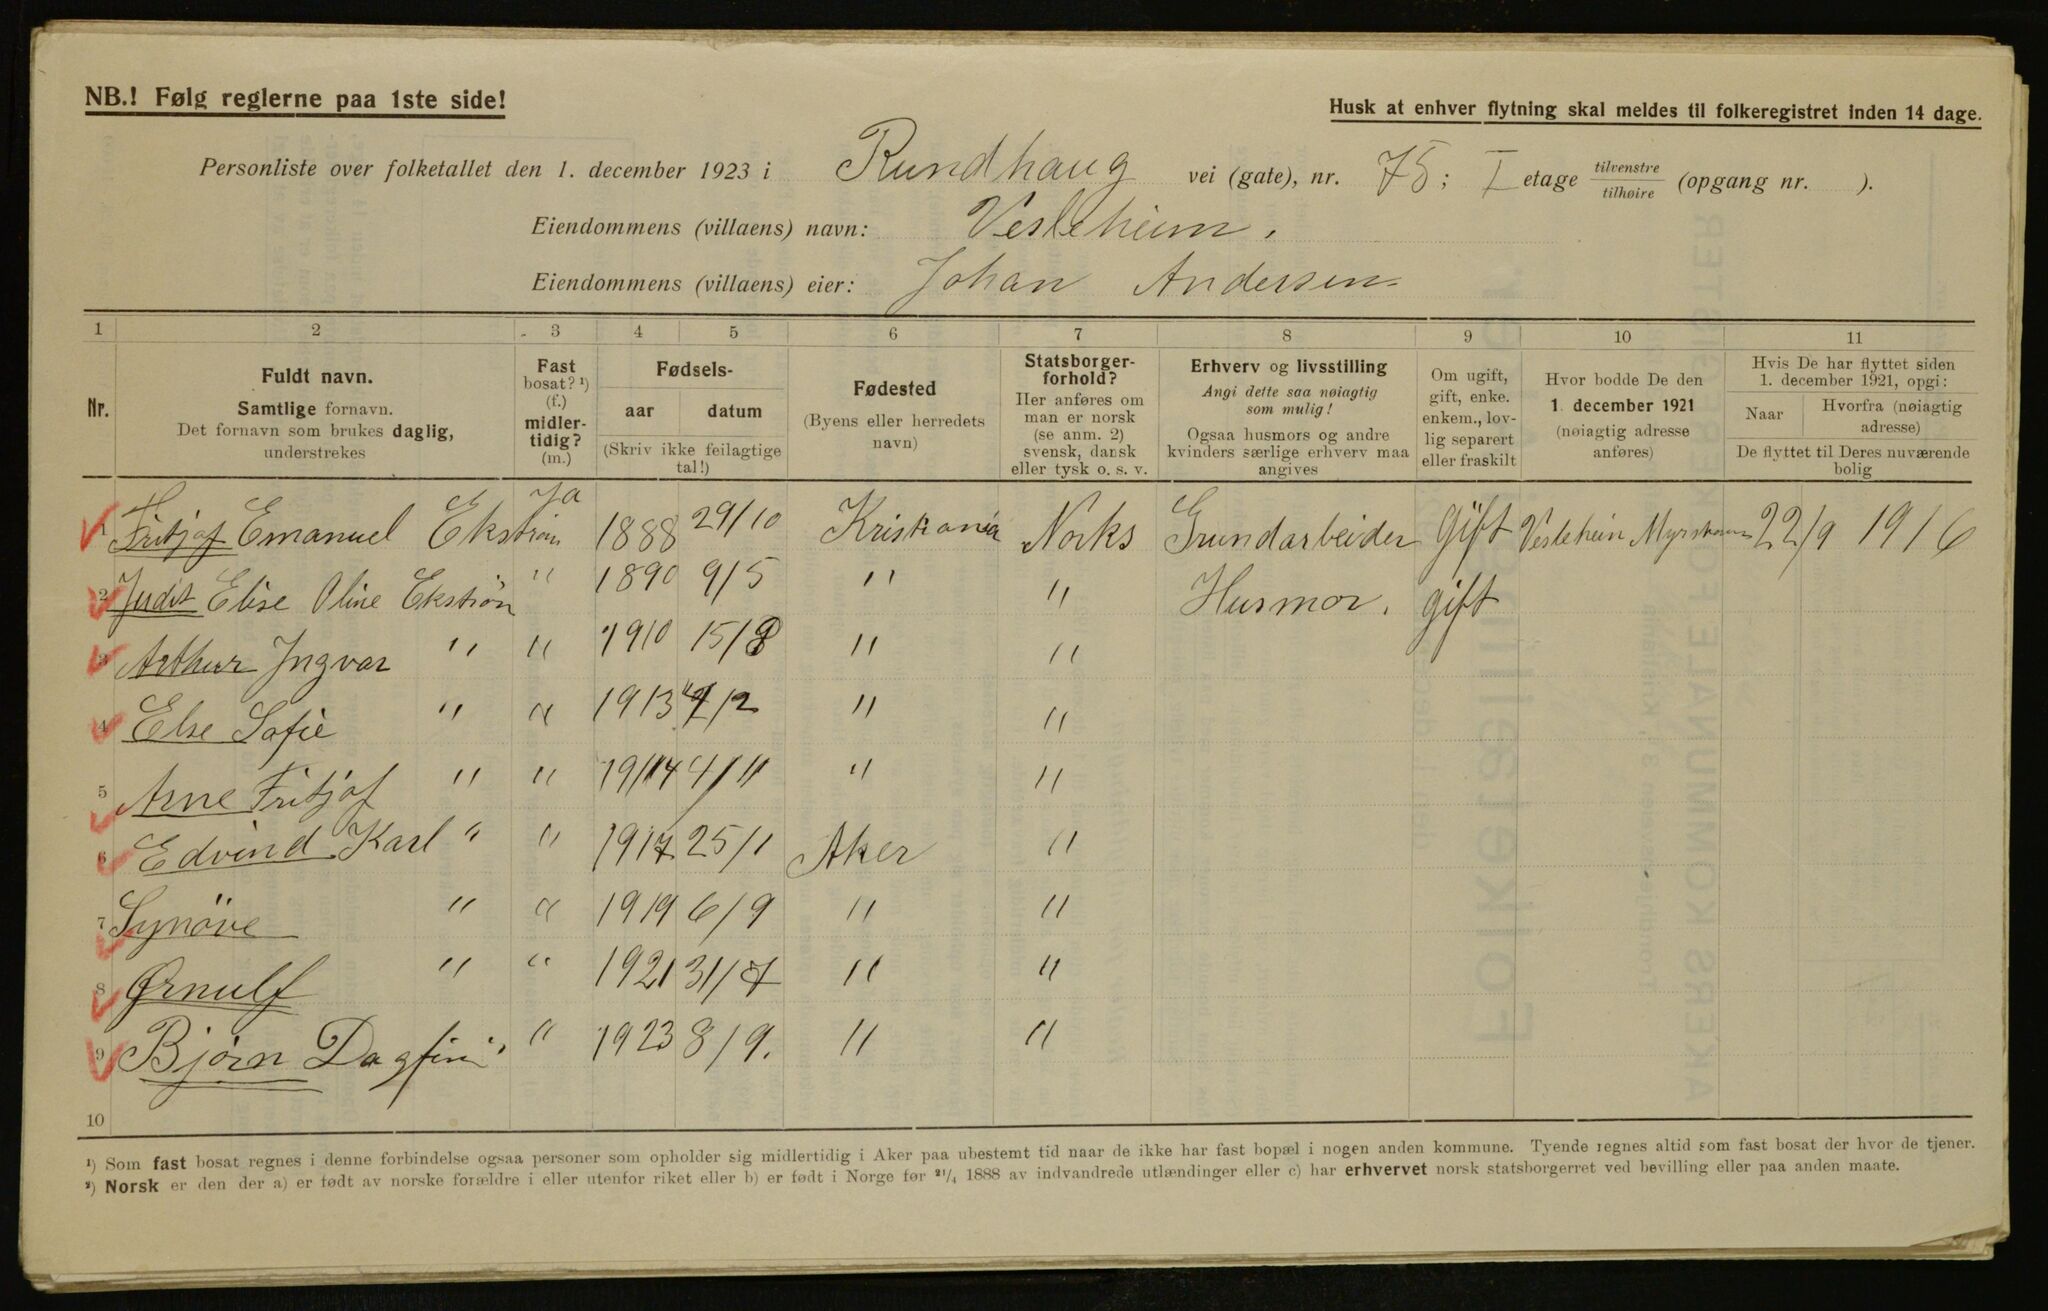 NB.! Følg reglerne paa 1ste side!
Husk at enhver flytning skal meldes til folkeregistret inden 14 dage.
Personliste over folketallet den 1. december 1923 i Rundhaug vei (gate), nr. 75; I etage tilvenstre tilhøire (opgang nr. ).
Eiendommens (villaens) navn: Vesleheim.
Eiendommens (villaens) eier: Johan Andersen
1 2 3 4 5 6 7 8 9 10 11
Nr.
Fuldt navn.
Samtlige fornavn.
Det fornavn som brukes daglig,
understrekes
Fast
bosat? ¹)
(f.)
midler-
tidig?
(m.)
Fødsels-
aar datum
(Skriv ikke feilagtige
tal!)
Fødested
(Byens eller herredets
navn)
Statsborger-
forhold?
Her anføres om
man er norsk
(se anm. 2)
svensk, dansk
eller tysk o. s. v.
Erhverv og livsstilling
Angi dette saa nøiagtig
som mulig!
Ogsaa husmors og andre
kvinders særlige erhverv maa
angives
Om ugift,
gift, enke.
enkem., lov-
lig separert
eller fraskilt
Hvor bodde De den
1. december 1921
(nøiagtig adresse
anføres)
Hvis De har flyttet siden
1. december 1921, opgi:
Naar Hvorfra (nøiagtig
adresse)
De flyttet til Deres nuværende
bolig
1 Fritjof Emanuel Ekstrøm Ja 1888 29/10 Kristiania Norks Grundarbeider Gift Vesleheim 22/9 1916
2 Judit Elise Oline Ekströn " 1890 9/5 " " Husmor. gift
3 Arthur Ingvar " " 1910 15/8 " "
4 Else Sofie " " 1913 /2 " "
5 Arne Fritjof " " 1914 4/11 " "
6 Edvind Karl " " 1917 25/1 Aker "
7 Synöve " " 1919 6/9 " "
8 Ørnulf " " 1921 31/7 " "
9 Björn Dagfin " " 1923 8/9. " "
10
¹) Som fast bosat regnes i denne forbindelse ogsaa personer som opholder sig midlertidig i Aker paa ubestemt tid naar de ikke har fast bopæl i nogen anden kommune. Tyende regnes altid som fast bosat der hvor de tjener.
²) Norsk er den der a) er født av norske forældre i eller utenfor riket eller b) er født i Norge før ²¹/₄ 1888 av indvandrede utlændinger eller c) har erhvervet norsk statsborgerret ved bevilling eller paa anden maate.